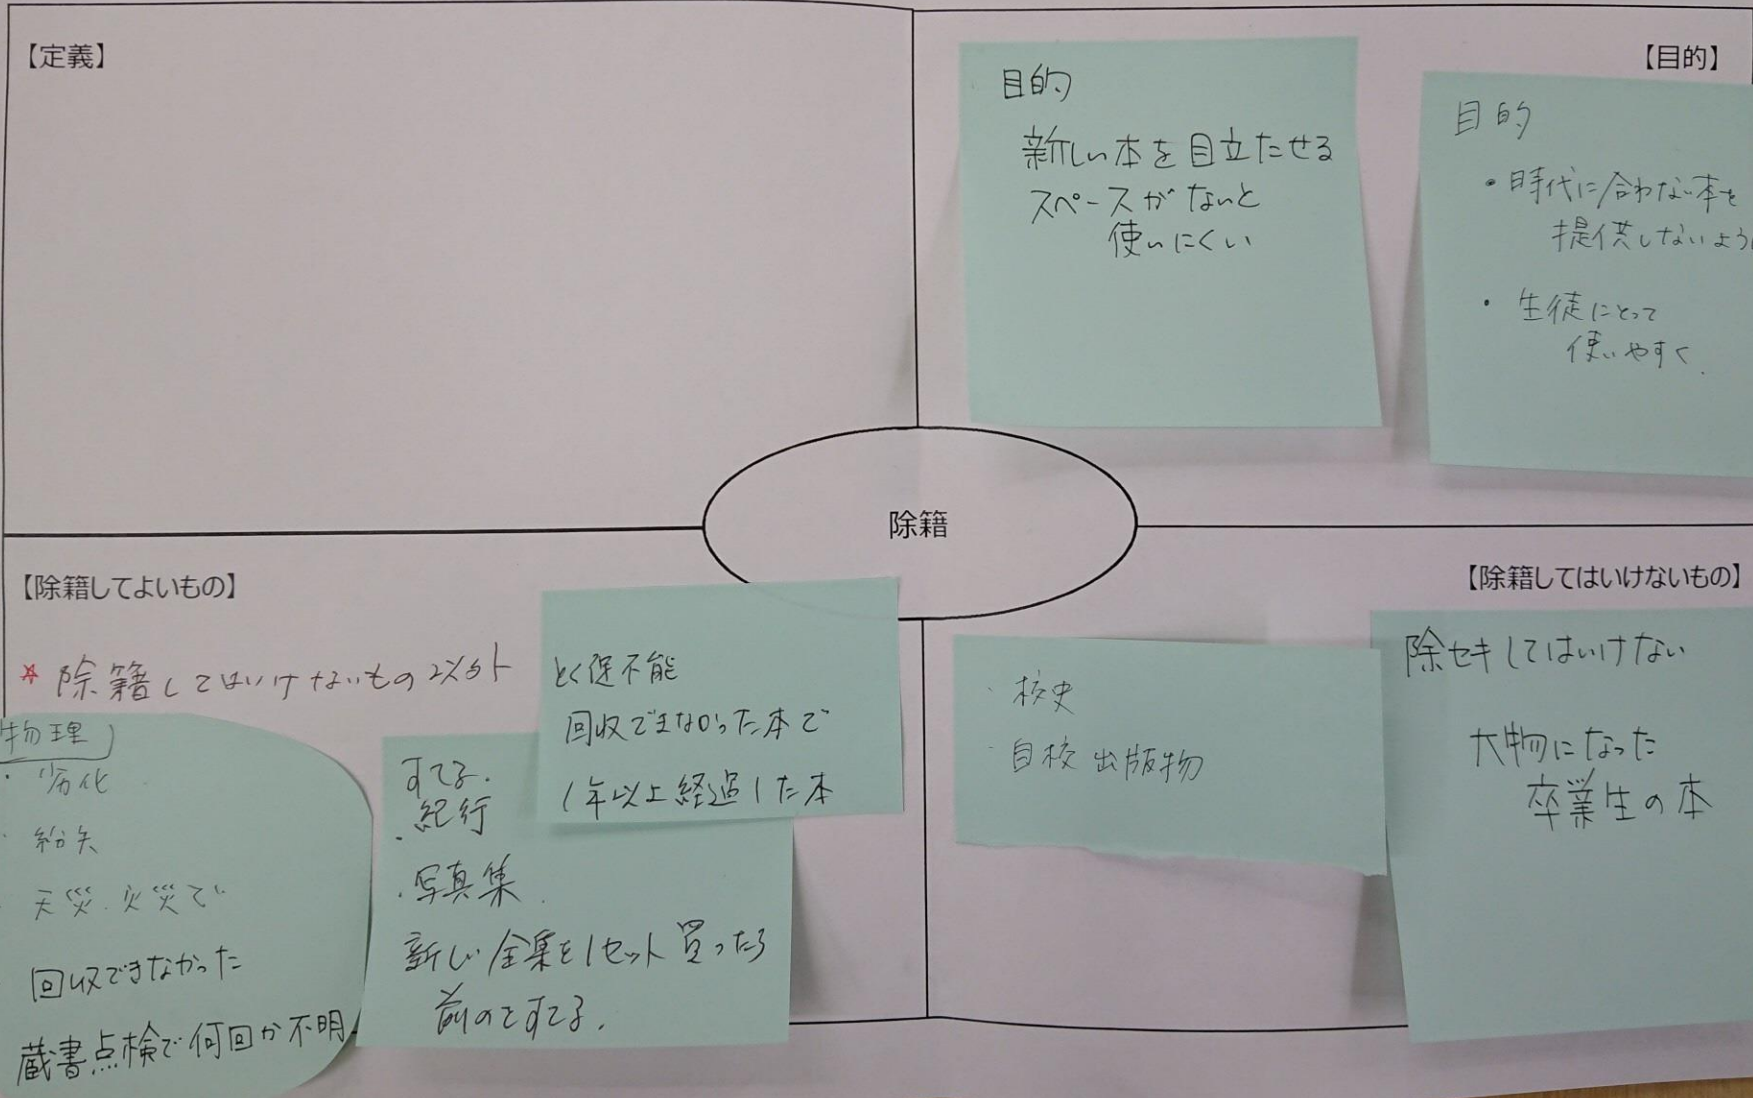 【定義】
【目的】
目的
新しい本を目立たせる
スペースがないと
使いにくい
目的
・時代に合わない本を
提供しないよう
・生徒にとって
使いやすく
除籍
【除籍してよいもの】
* 除籍してはいけないもの以外
物理
・劣化
・紛失
・天災.火災で
回収できなかった
蔵書点検で何回か不明
すてる.
・紀行
・写真集.
新しい全集を1セット買ったら
前のすてる.
とく促不能
回収できなかった本で
1年以上経過した本
【除籍してはいけないもの】
・校史
・自校出版物
除セキしてはいけない
大物になった
卒業生の本